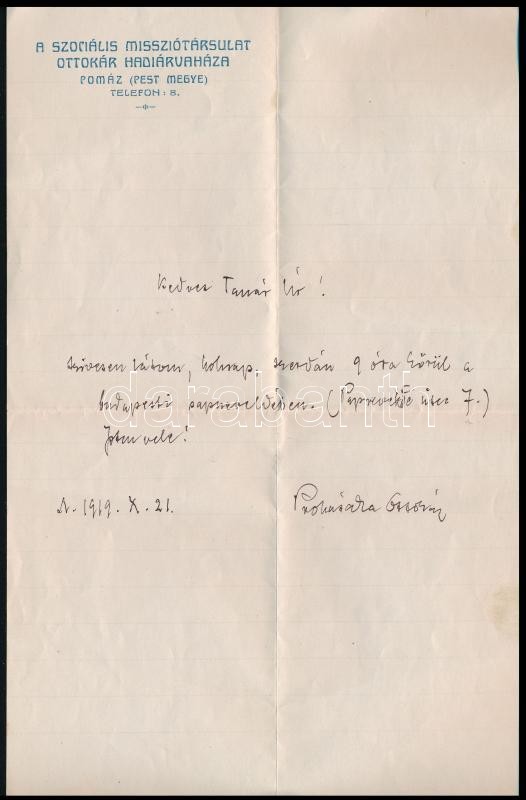 A SZOCIÁLIS MISSZIÓTÁRSULAT
OTTOKÁR HADIÁRVAHÁZA
POMÁZ (PEST MEGYE)
TELEFON: 8.
Kedves Tanár Úr!
szivesen látom, holnap, szerdán 9 óra körül a
budapesti papneveldében. (Papnevelde utca 7.)
Isten vele!
1919. X. 21.
Prohászka Ottokár
darabanth